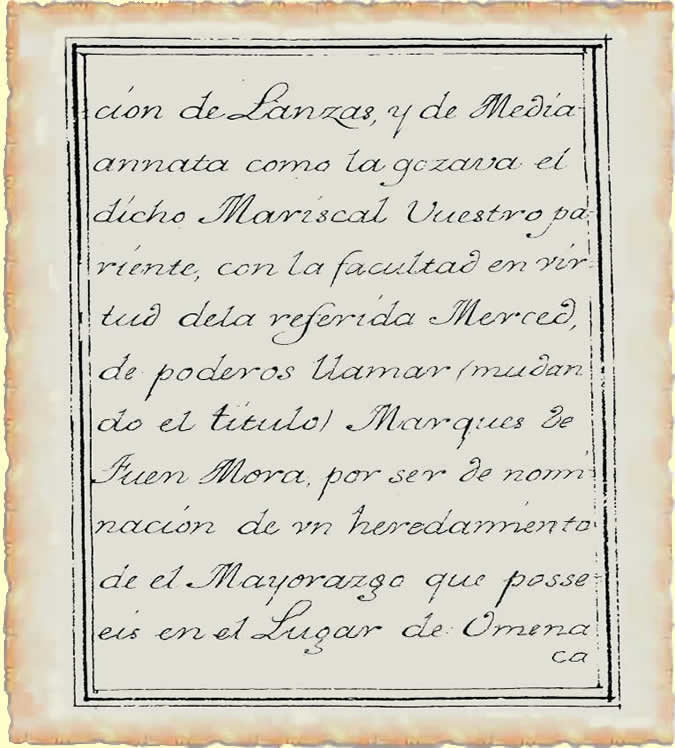 cion de Lanzas, y de Media
annata como la gozava el
dicho Mariscal Vuestro pa
riente, con la facultad en vir-
tud dela referida Merced,
de poderos llamar (mudan
do el titulo) Marques de
Fuen Mora, por ser de nomi
nación de vn heredamiento
de el Mayorazgo que posse-
eis en el Lugar de Omena
ca